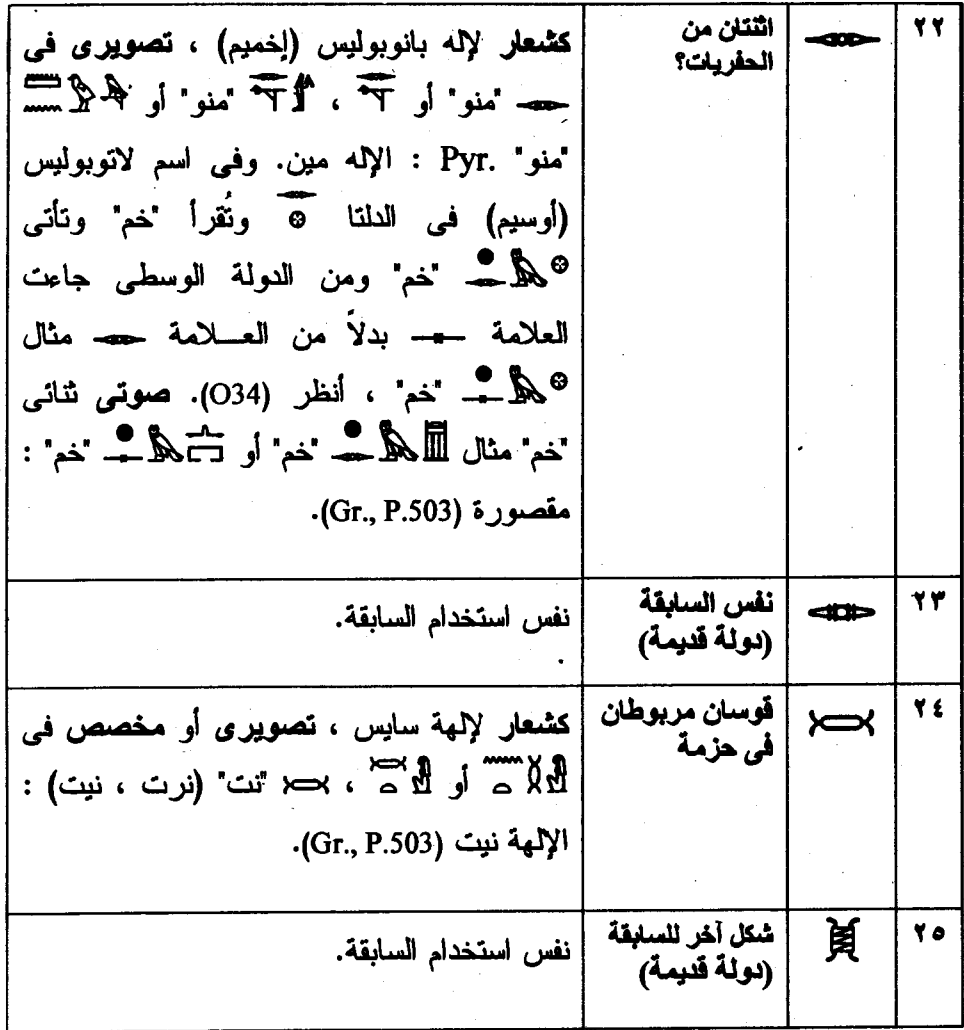 ٢٢
𓋉
اثنتان من
الحفريات؟
كشعار لإله بانوبوليس (إخميم) ، تصويرى فى
𓋉 "منو" أو 𓋉𓊹 ، "منو" أو
"منو" .Pyr : الإله مين. وفى اسم لاتوبوليس
(أوسيم) فى الدلتا 𓋉𓊖 وتُقرأ "خم" وتأتى
𓐍𓋉𓅓𓊖 "خم" ومن الدولة الوسطى جاءت
العلامة 𓊃 بدلاً من العـــلامة 𓋉 مثال
𓐍𓊃𓅓𓊖 "خم" ، أنظر (O34). صوتى ثنائى
"خم" مثال 𓐍𓋉𓅓 "خم" أو 𓐍𓊃𓅓 "خم" :
مقصورة (Gr., P.503).
٢٣
𓋊
نفس السابقة
(دولة قديمة)
نفس استخدام السابقة.
٢٤
𓋋
قوسان مربوطان
فى حزمة
كشعار لإلهة سايس ، تصويرى أو مخصص فى
أو ، 𓋋 "نت" (نرت ، نيت) :
الإلهة نيت (Gr., P.503).
٢٥
𓋌
شكل آخر للسابقة
(دولة قديمة)
نفس استخدام السابقة.